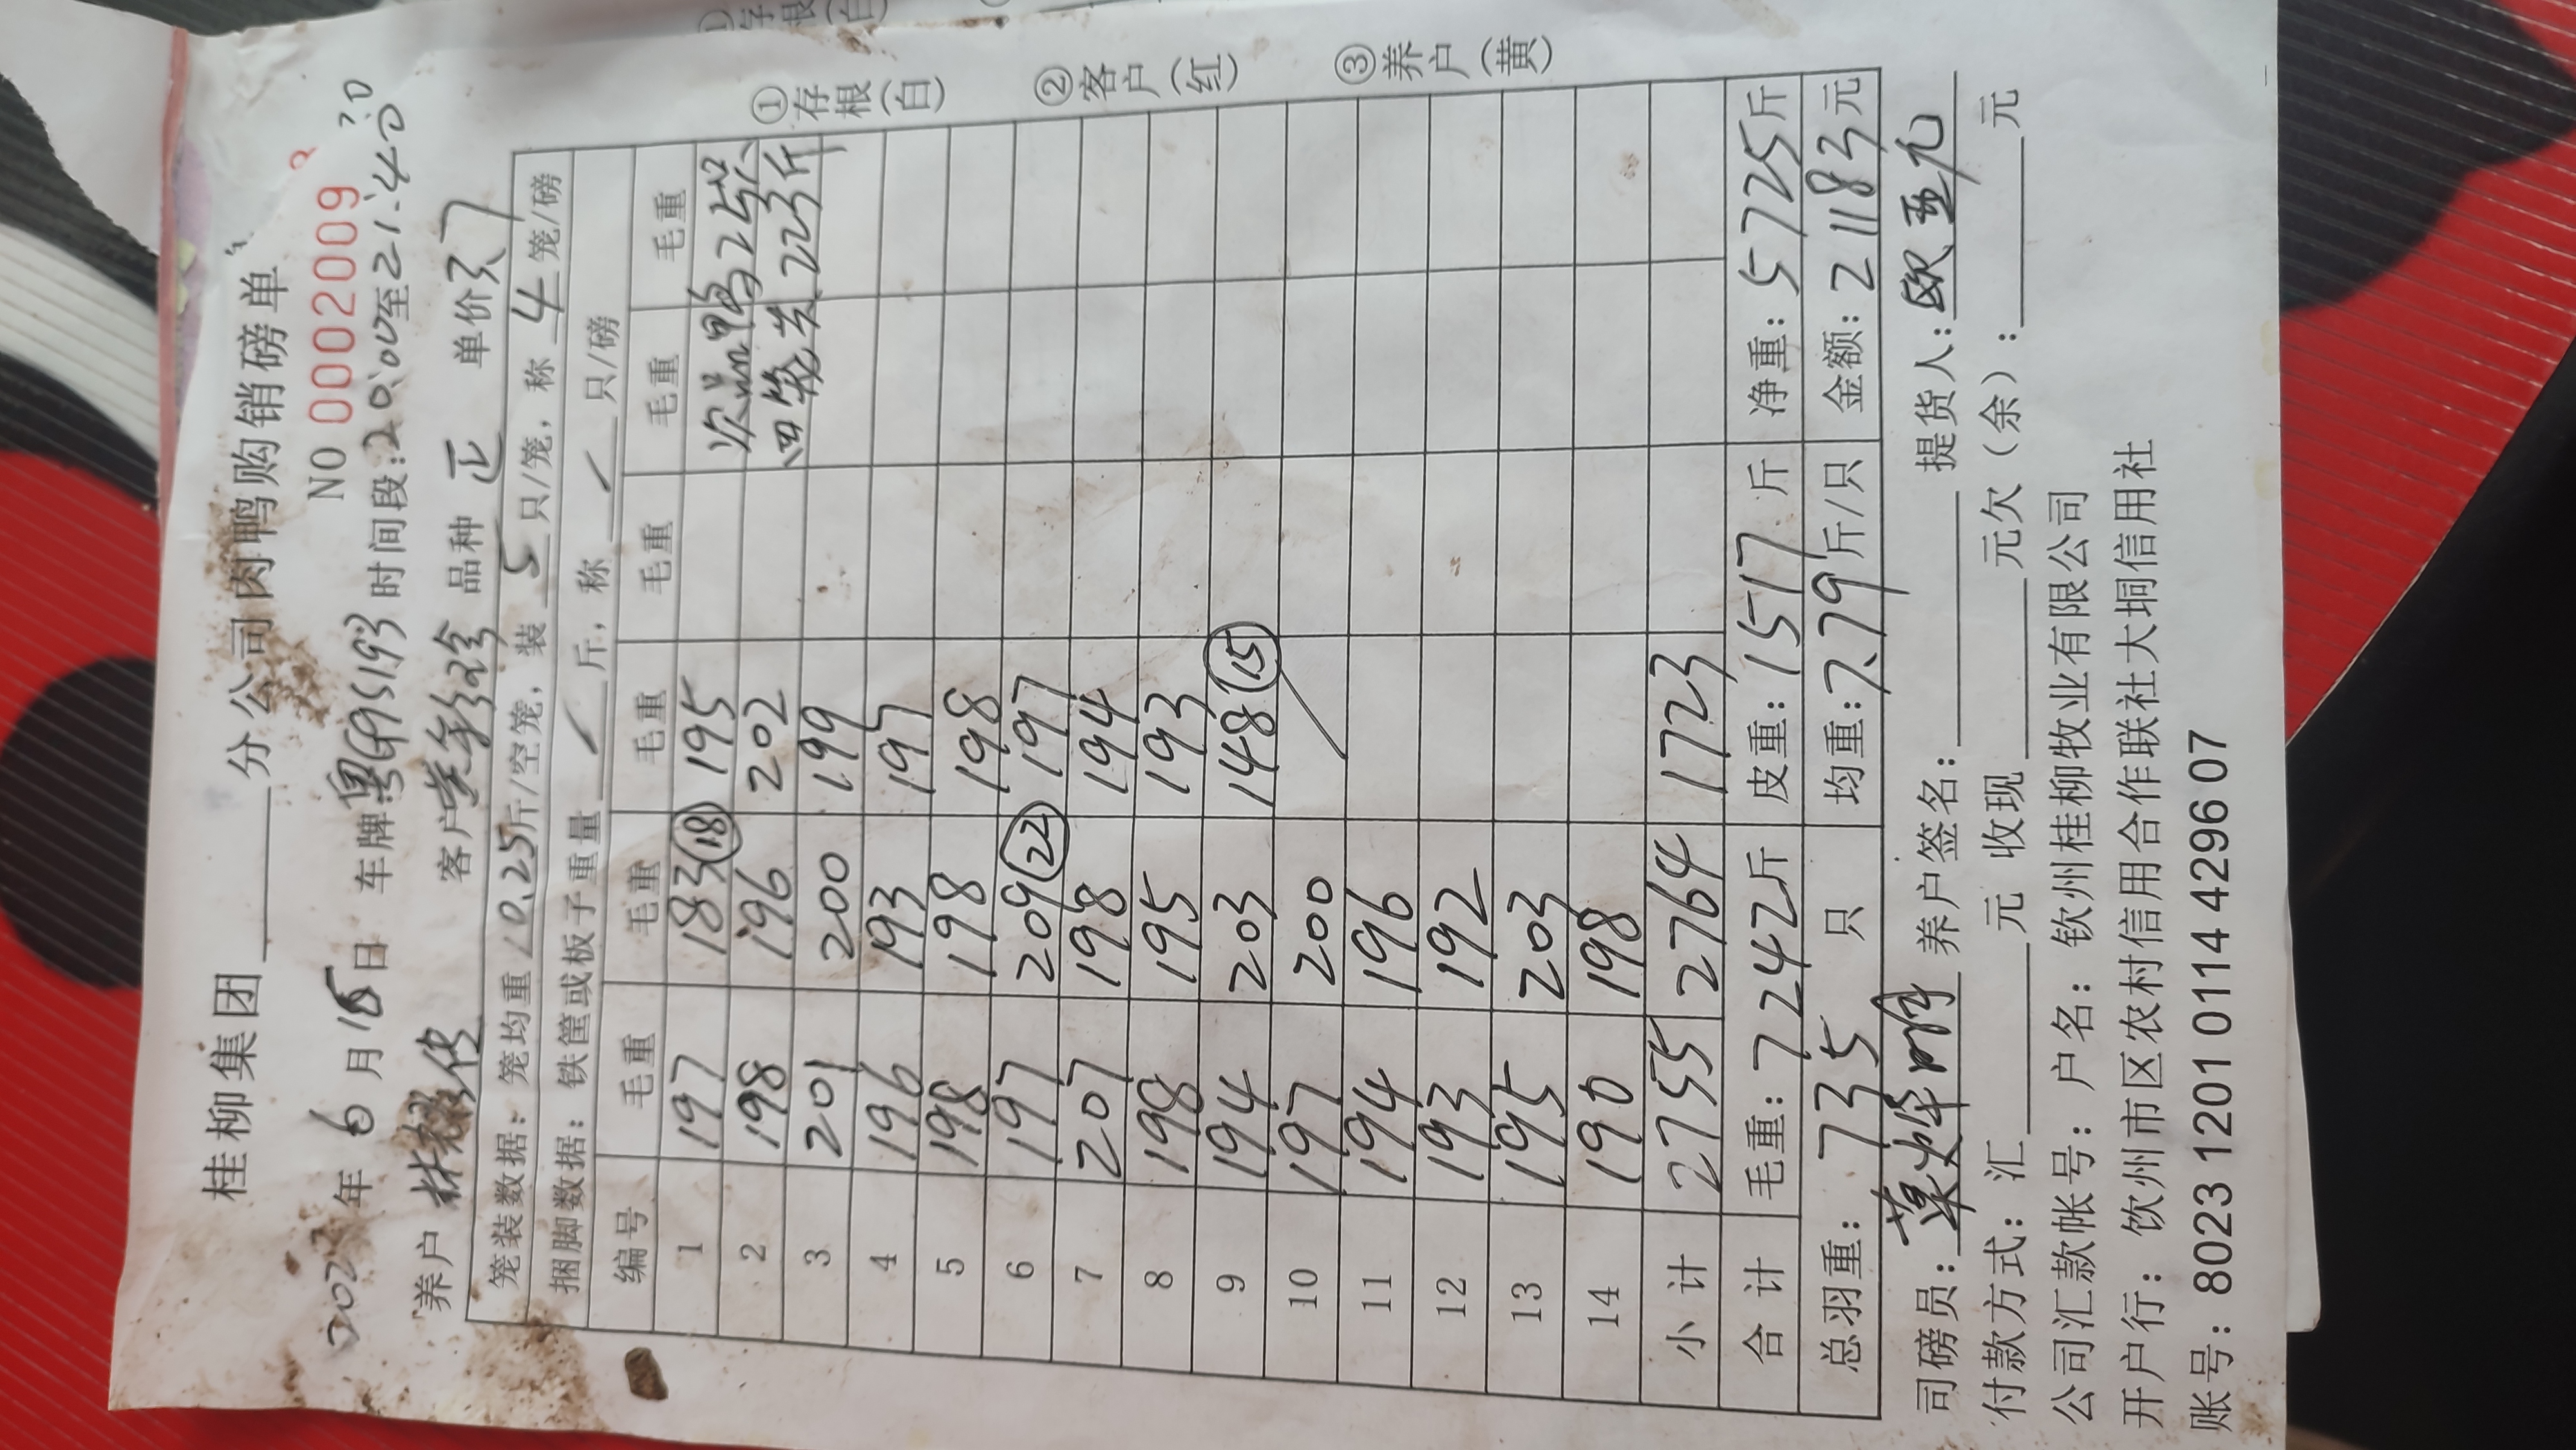 桂柳集团 分公司肉鸭购销磅单
NO 0002009
年 6 月 15 日 车牌 时间段:20:00至21:40
养户 林 传 客户 彩珍 品种 正 单价 3.7
笼装数据：笼均重 10.25 斤/空笼，装 5 只/笼，称 4 笼/磅
捆脚数据：铁筐或板子重量 / 斤，称 / 只/磅
编号 毛重 毛重 毛重 毛重 毛重 毛重
1 197 183 ⑱ 195 次品鸭24只、
2 198 196 202 四笼共223斤
3 201 200 199
4 196 193 197
5 198 198 198
6 197 209 ㉒ 197
7 207 198 194
8 198 195 193
9 194 203 148 ⑮
10 197 200 /
11 194 196
12 193 192
13 195 203
14 190 198
小计 2755 2764 1723
合计 毛重：7242斤 皮重：1517 斤 净重：5725斤
总羽重：735 只 均重：7.79斤/只 金额：21183元
司磅员： 养户签名： 提货人：
付款方式：汇 元 收现 元欠（余）： 元
公司汇款帐号：户名：钦州桂柳牧业有限公司
开户行：钦州市区农村信用合作联社大垌信用社
账号：8023 1201 0114 4296 07
①存根（白）
②客户（红）
③养户（黄）
①存根（白）